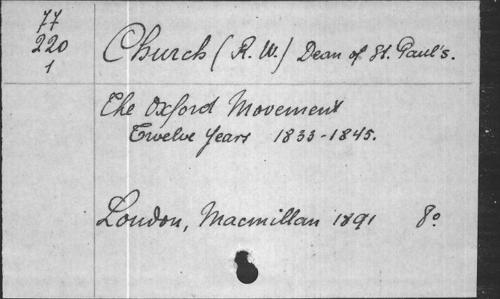 77
220
1
Church (R. W.) Dean of St. Paul's.
The Oxford Movement
Twelve Years 1833-1845.
London, Macmillan 1891 8°